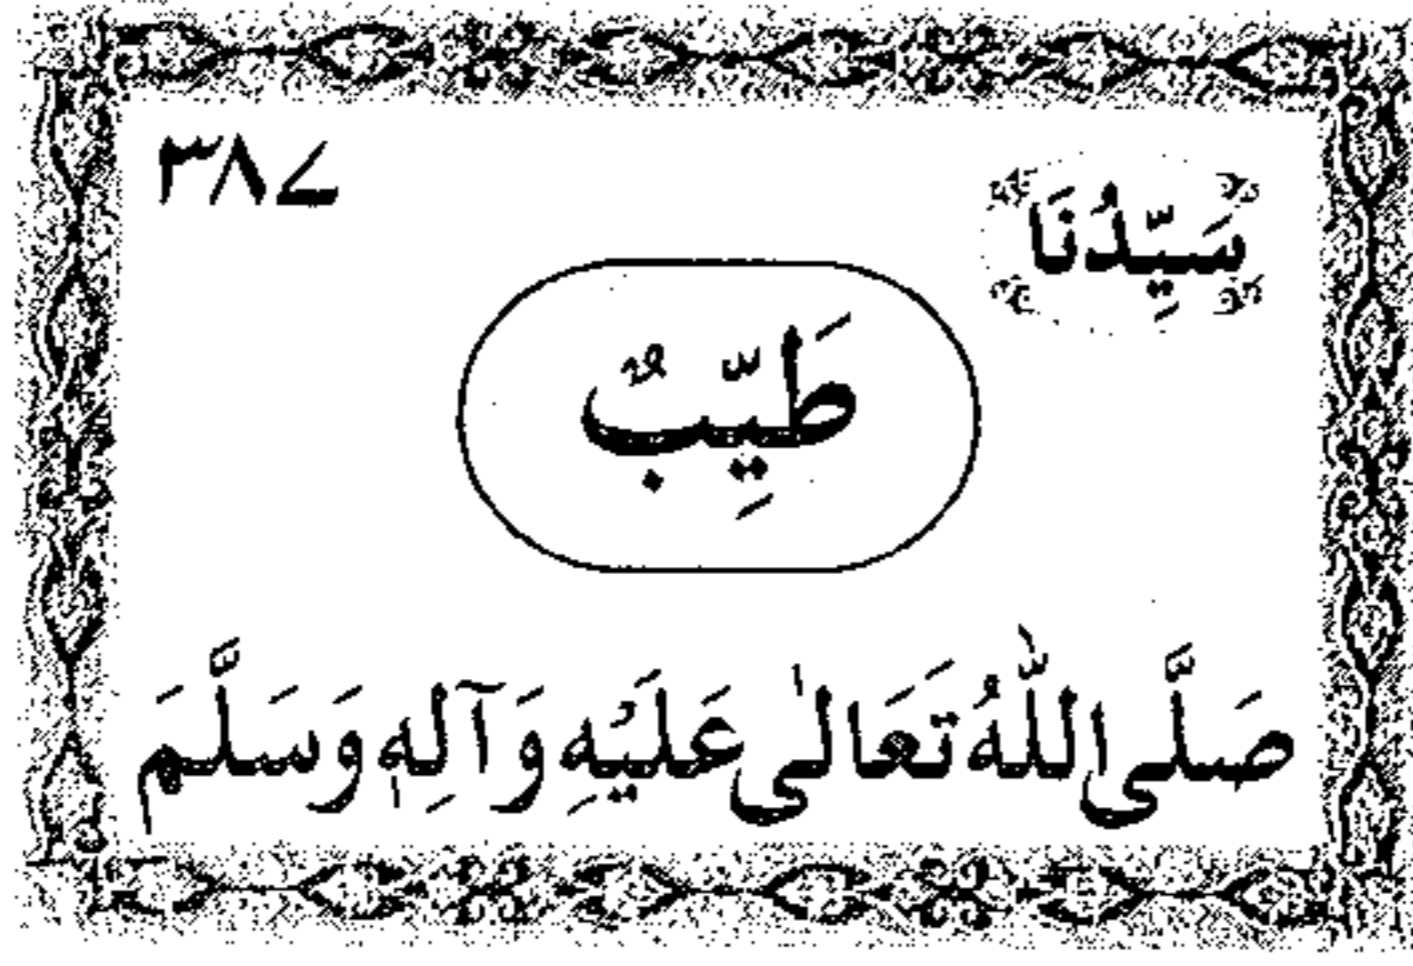 ٣٨٧
سَيِّدُنَا
طَيِّبٌ
صَلَّى اللّٰهُ تَعَالٰى عَلَيْهِ وَآلِهٖ وَسَلَّمَ